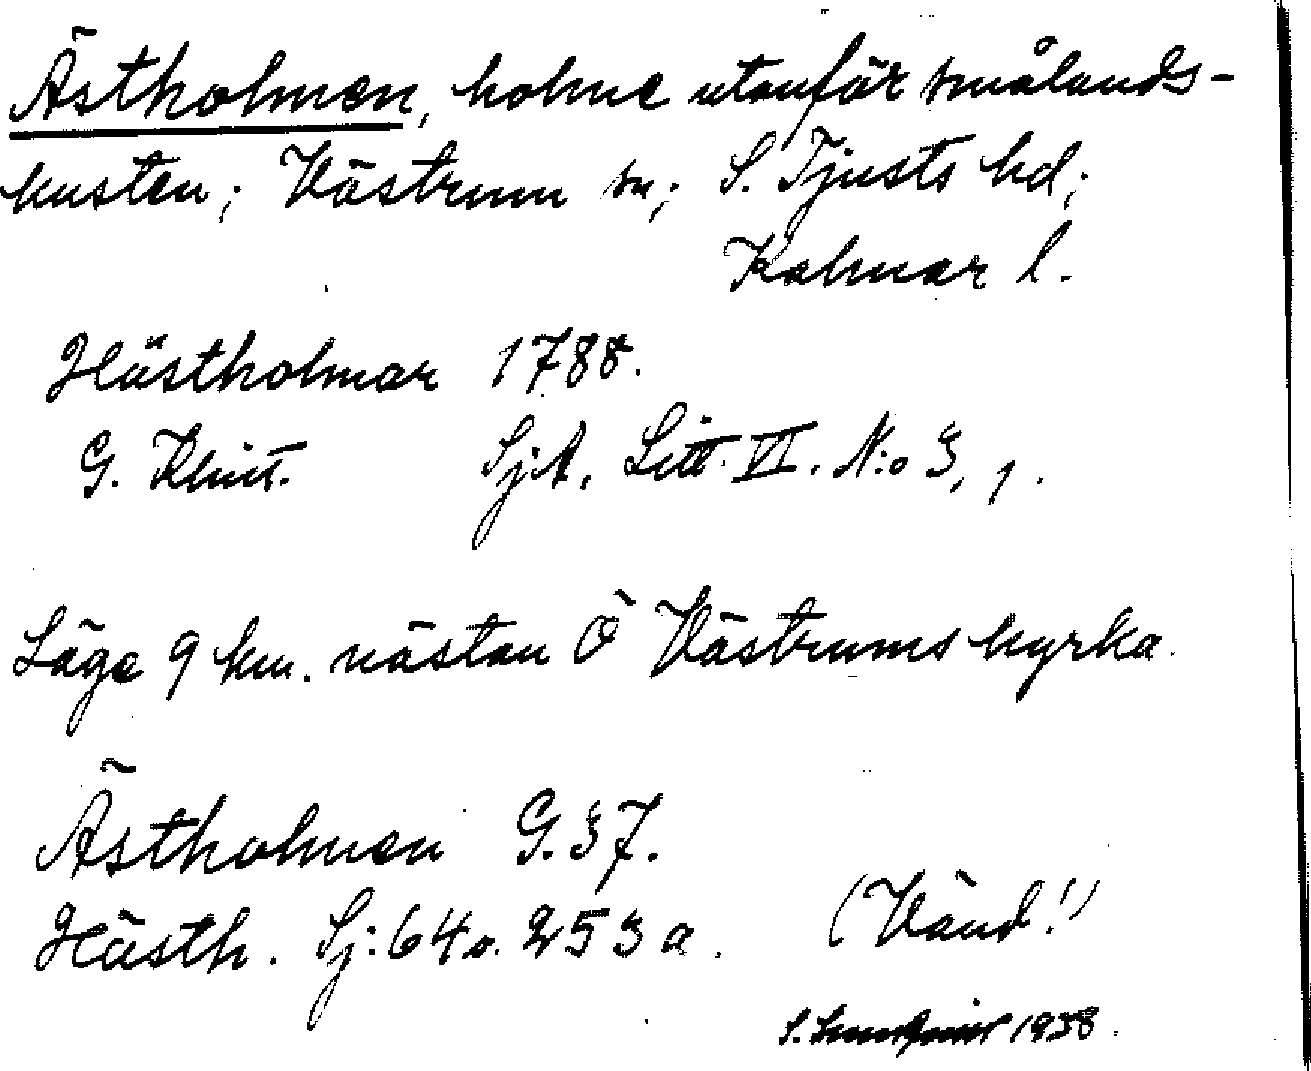 Ästholmen, holme utanför smålands-
kusten; Västrum sn; S. Tjusts hd;
Kalmar l.
Hästholmar 1788.
G. Klint. Sj:A. Litt. VI. N:o 3, 1.
Läge 9 km. nästan Ö Västrums kyrka.
Ästholmen G. 37.
Hästh. Sj: 64 o. 253 a. (Vänd!)
S. 1938.